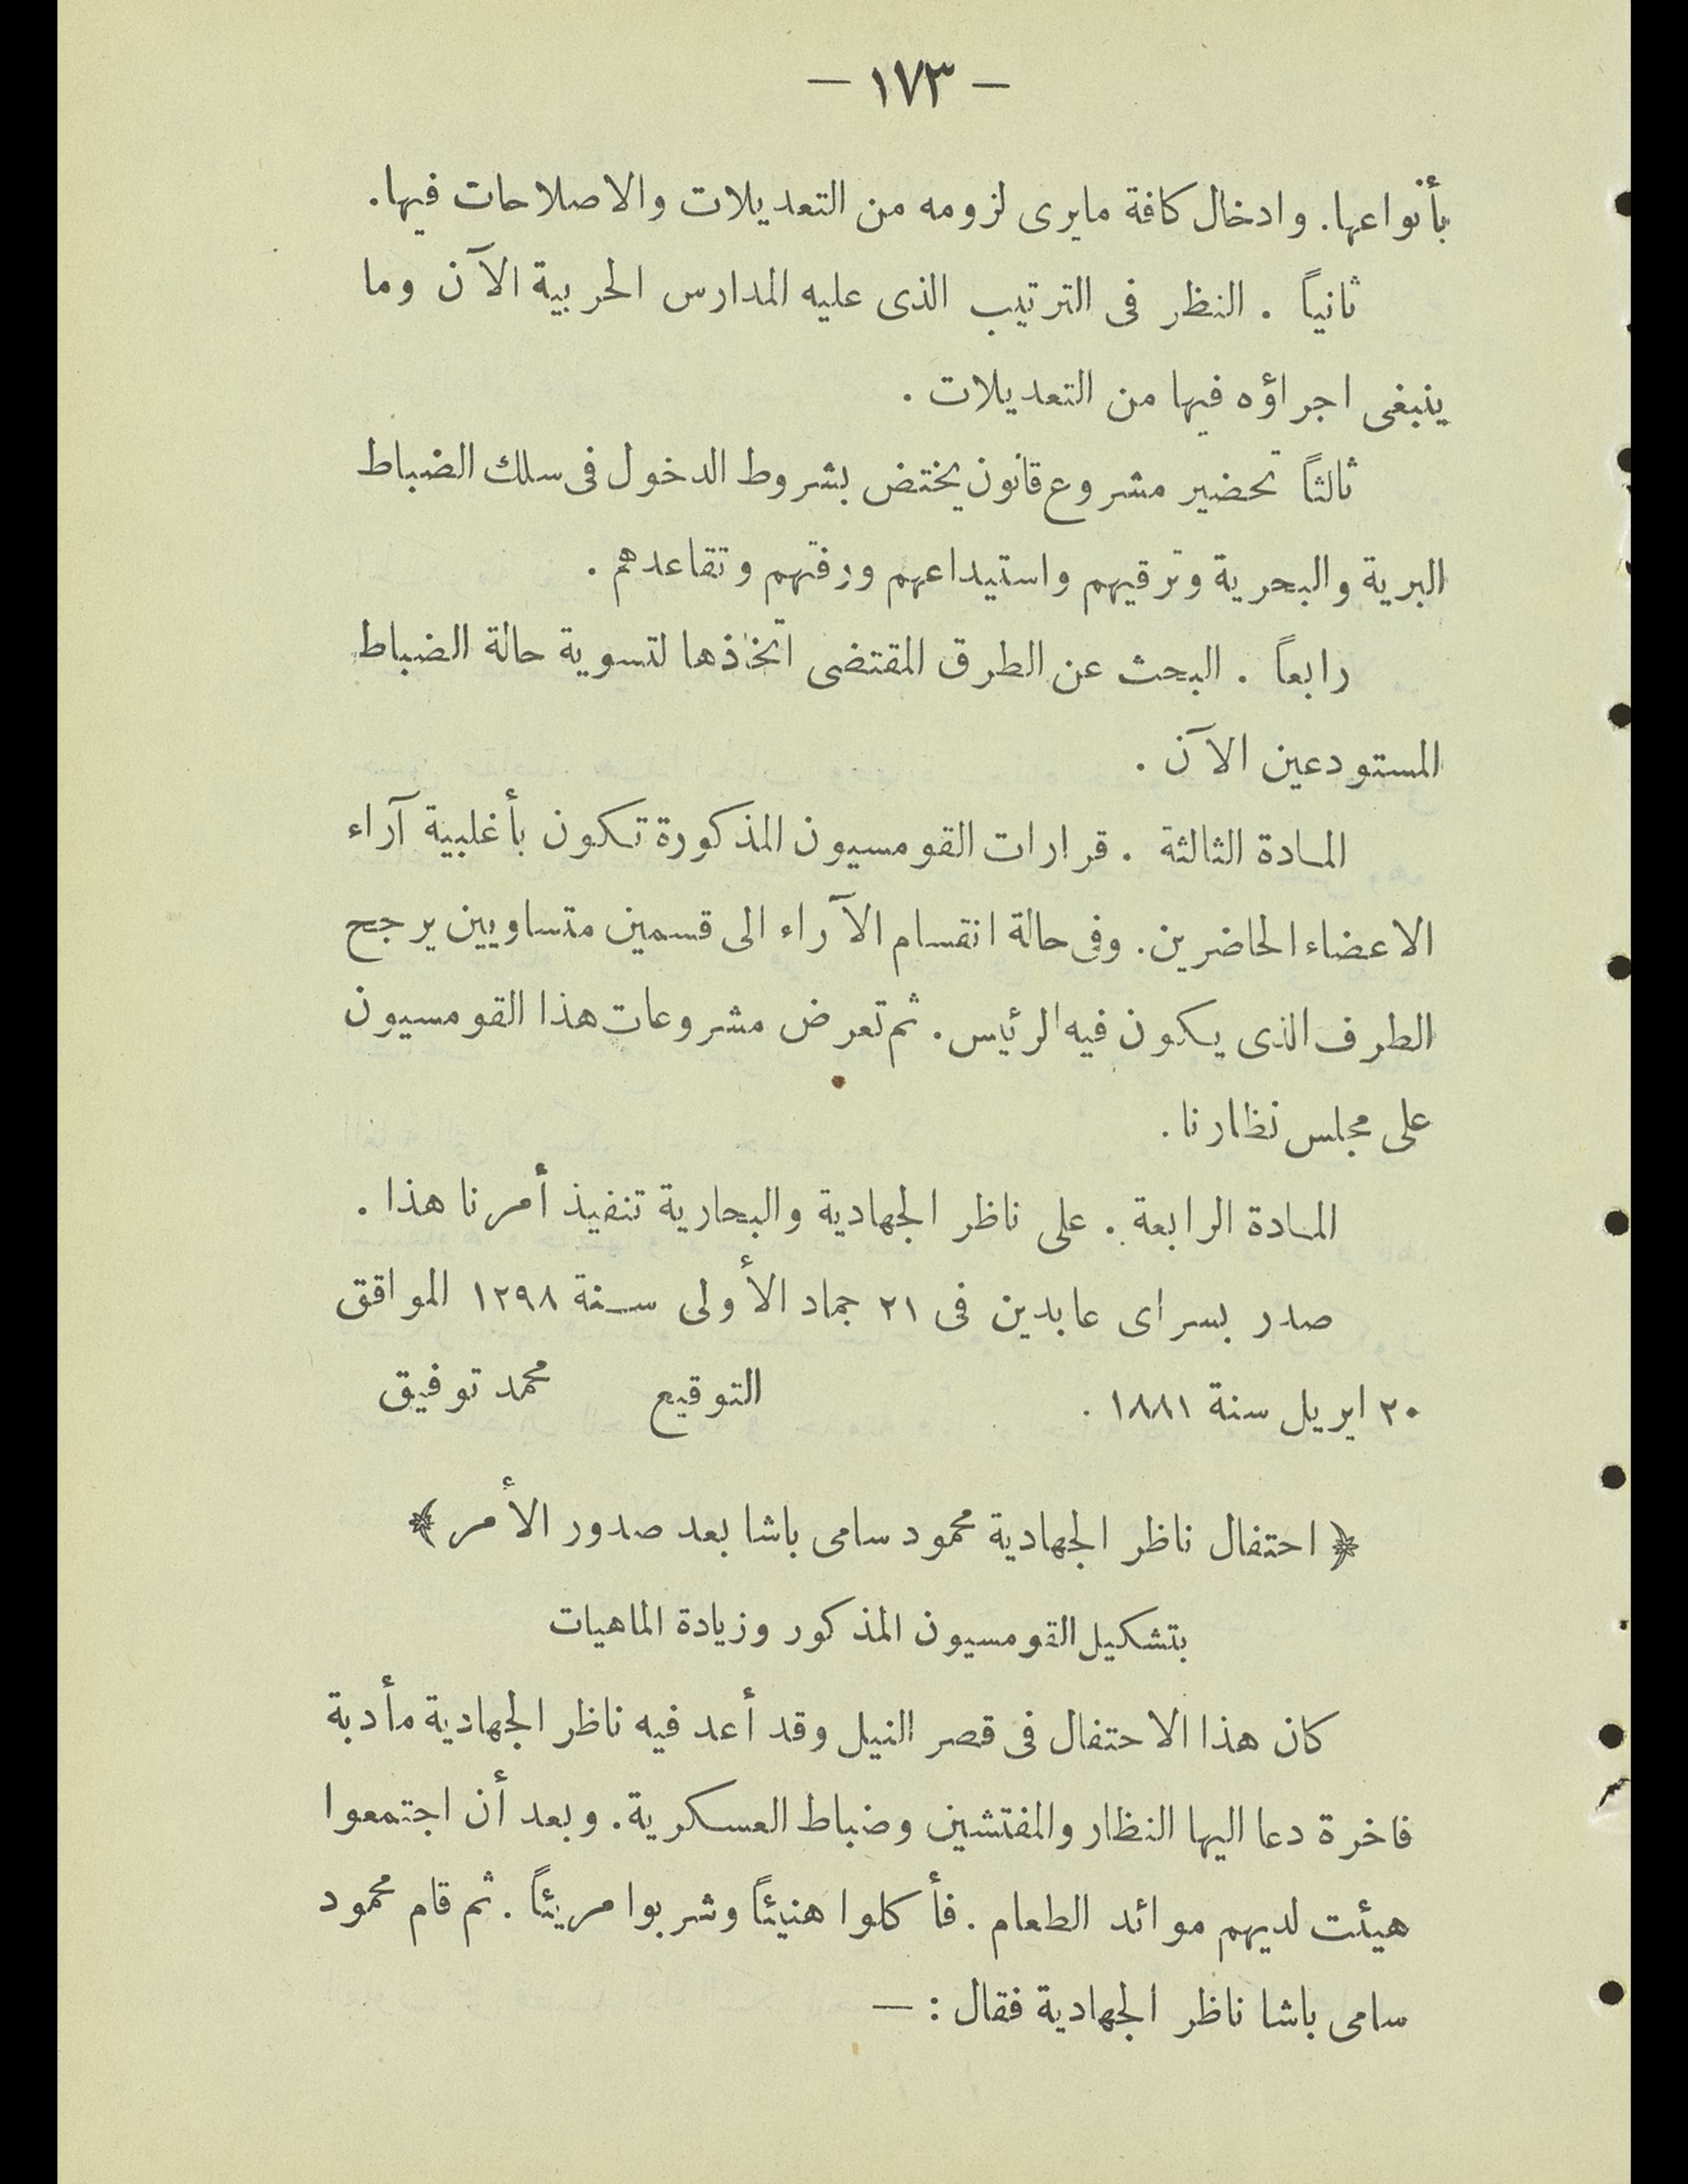 — ١٧٣ —
بأنواعها. وادخال كافة مايرى لزومه من التعديلات والاصلاحات فيها.
ثانياً . النظر فى الترتيب الذى عليه المدارس الحربية الآن وما
ينبغى اجراؤه فيها من التعديلات .
ثالثاً تحضير مشروع قانون يختض بشروط الدخول فى سلك الضباط
البرية والبحرية وترقيهم واستيداعهم ورفتهم وتقاعدهم .
رابعاً . البحث عن الطرق المقتضى اتخاذها لتسوية حالة الضباط
المستودعين الآن .
المادة الثالثة . قرارات القومسيون المذكورة تكون بأغلبية آراء
الاعضاء الحاضرين. وفى حالة انقسام الآراء الى قسمين متساويين يرجح
الطرف الذى يكون فيه الرئيس. ثم تعرض مشروعات هذا القومسيون
على مجلس نظارنا.
المادة الرابعة . على ناظر الجهادية والبحارية تنفيذ أمرنا هذا .
صدر بسراى عابدين فى ٢١ جماد الأولى سنة ١٢٩٨ الموافق
٢٠ ابريل سنة ١٨٨١ . التوقيع محمد توفيق
﴿ احتفال ناظر الجهادية محمود سامى باشا بعد صدور الأمر ﴾
بتشكيل القومسيون المذكور وزيادة الماهيات
كان هذا الاحتفال فى قصر النيل وقد أعد فيه ناظر الجهادية مأدبة
فاخرة دعا اليها النظار والمفتشين وضباط العسكرية. وبعد أن اجتمعوا
هيئت لديهم موائد الطعام . فأكلوا هنيئاً وشربوا مريئاً . ثم قام محمود
سامى باشا ناظر الجهادية فقال : —